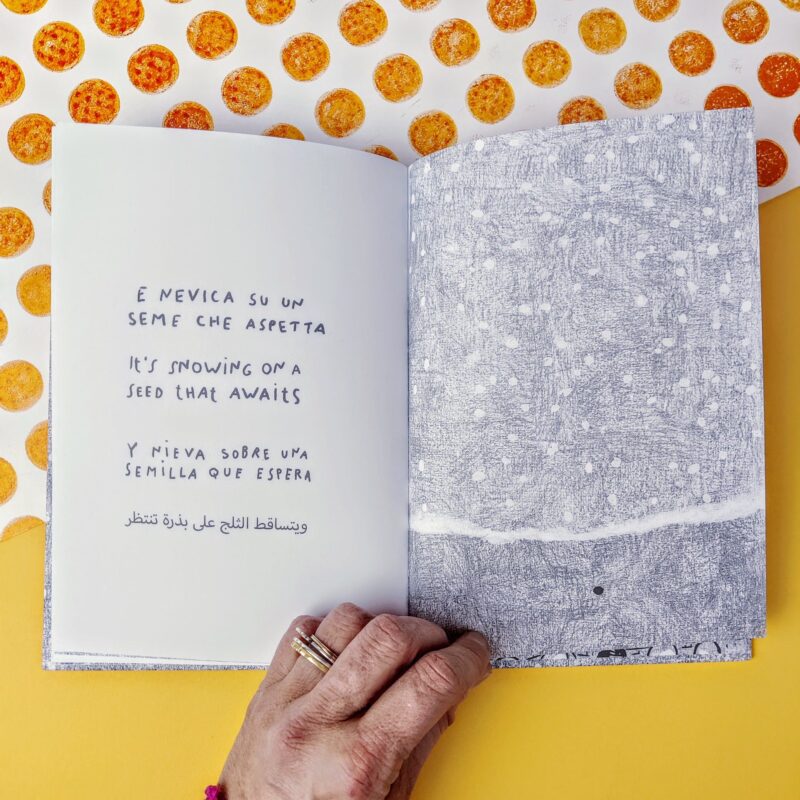 E NEVICA SU UN
SEME CHE ASPETTA
It's SNOWING ON A
SEED that AWAItS
Y NIEVA SOBRE UNA
SEMILLA QUE ESPERA
ويتساقط الثلج على بذرة تنتظر